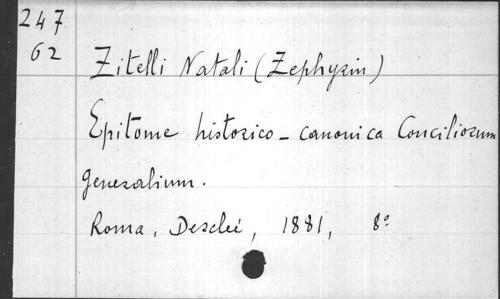 247
62
Zitelli Natali (Zephyrin)
Epitome historico - canonica Conciliorum
generalium.
Roma, Desclée, 1881, 8º